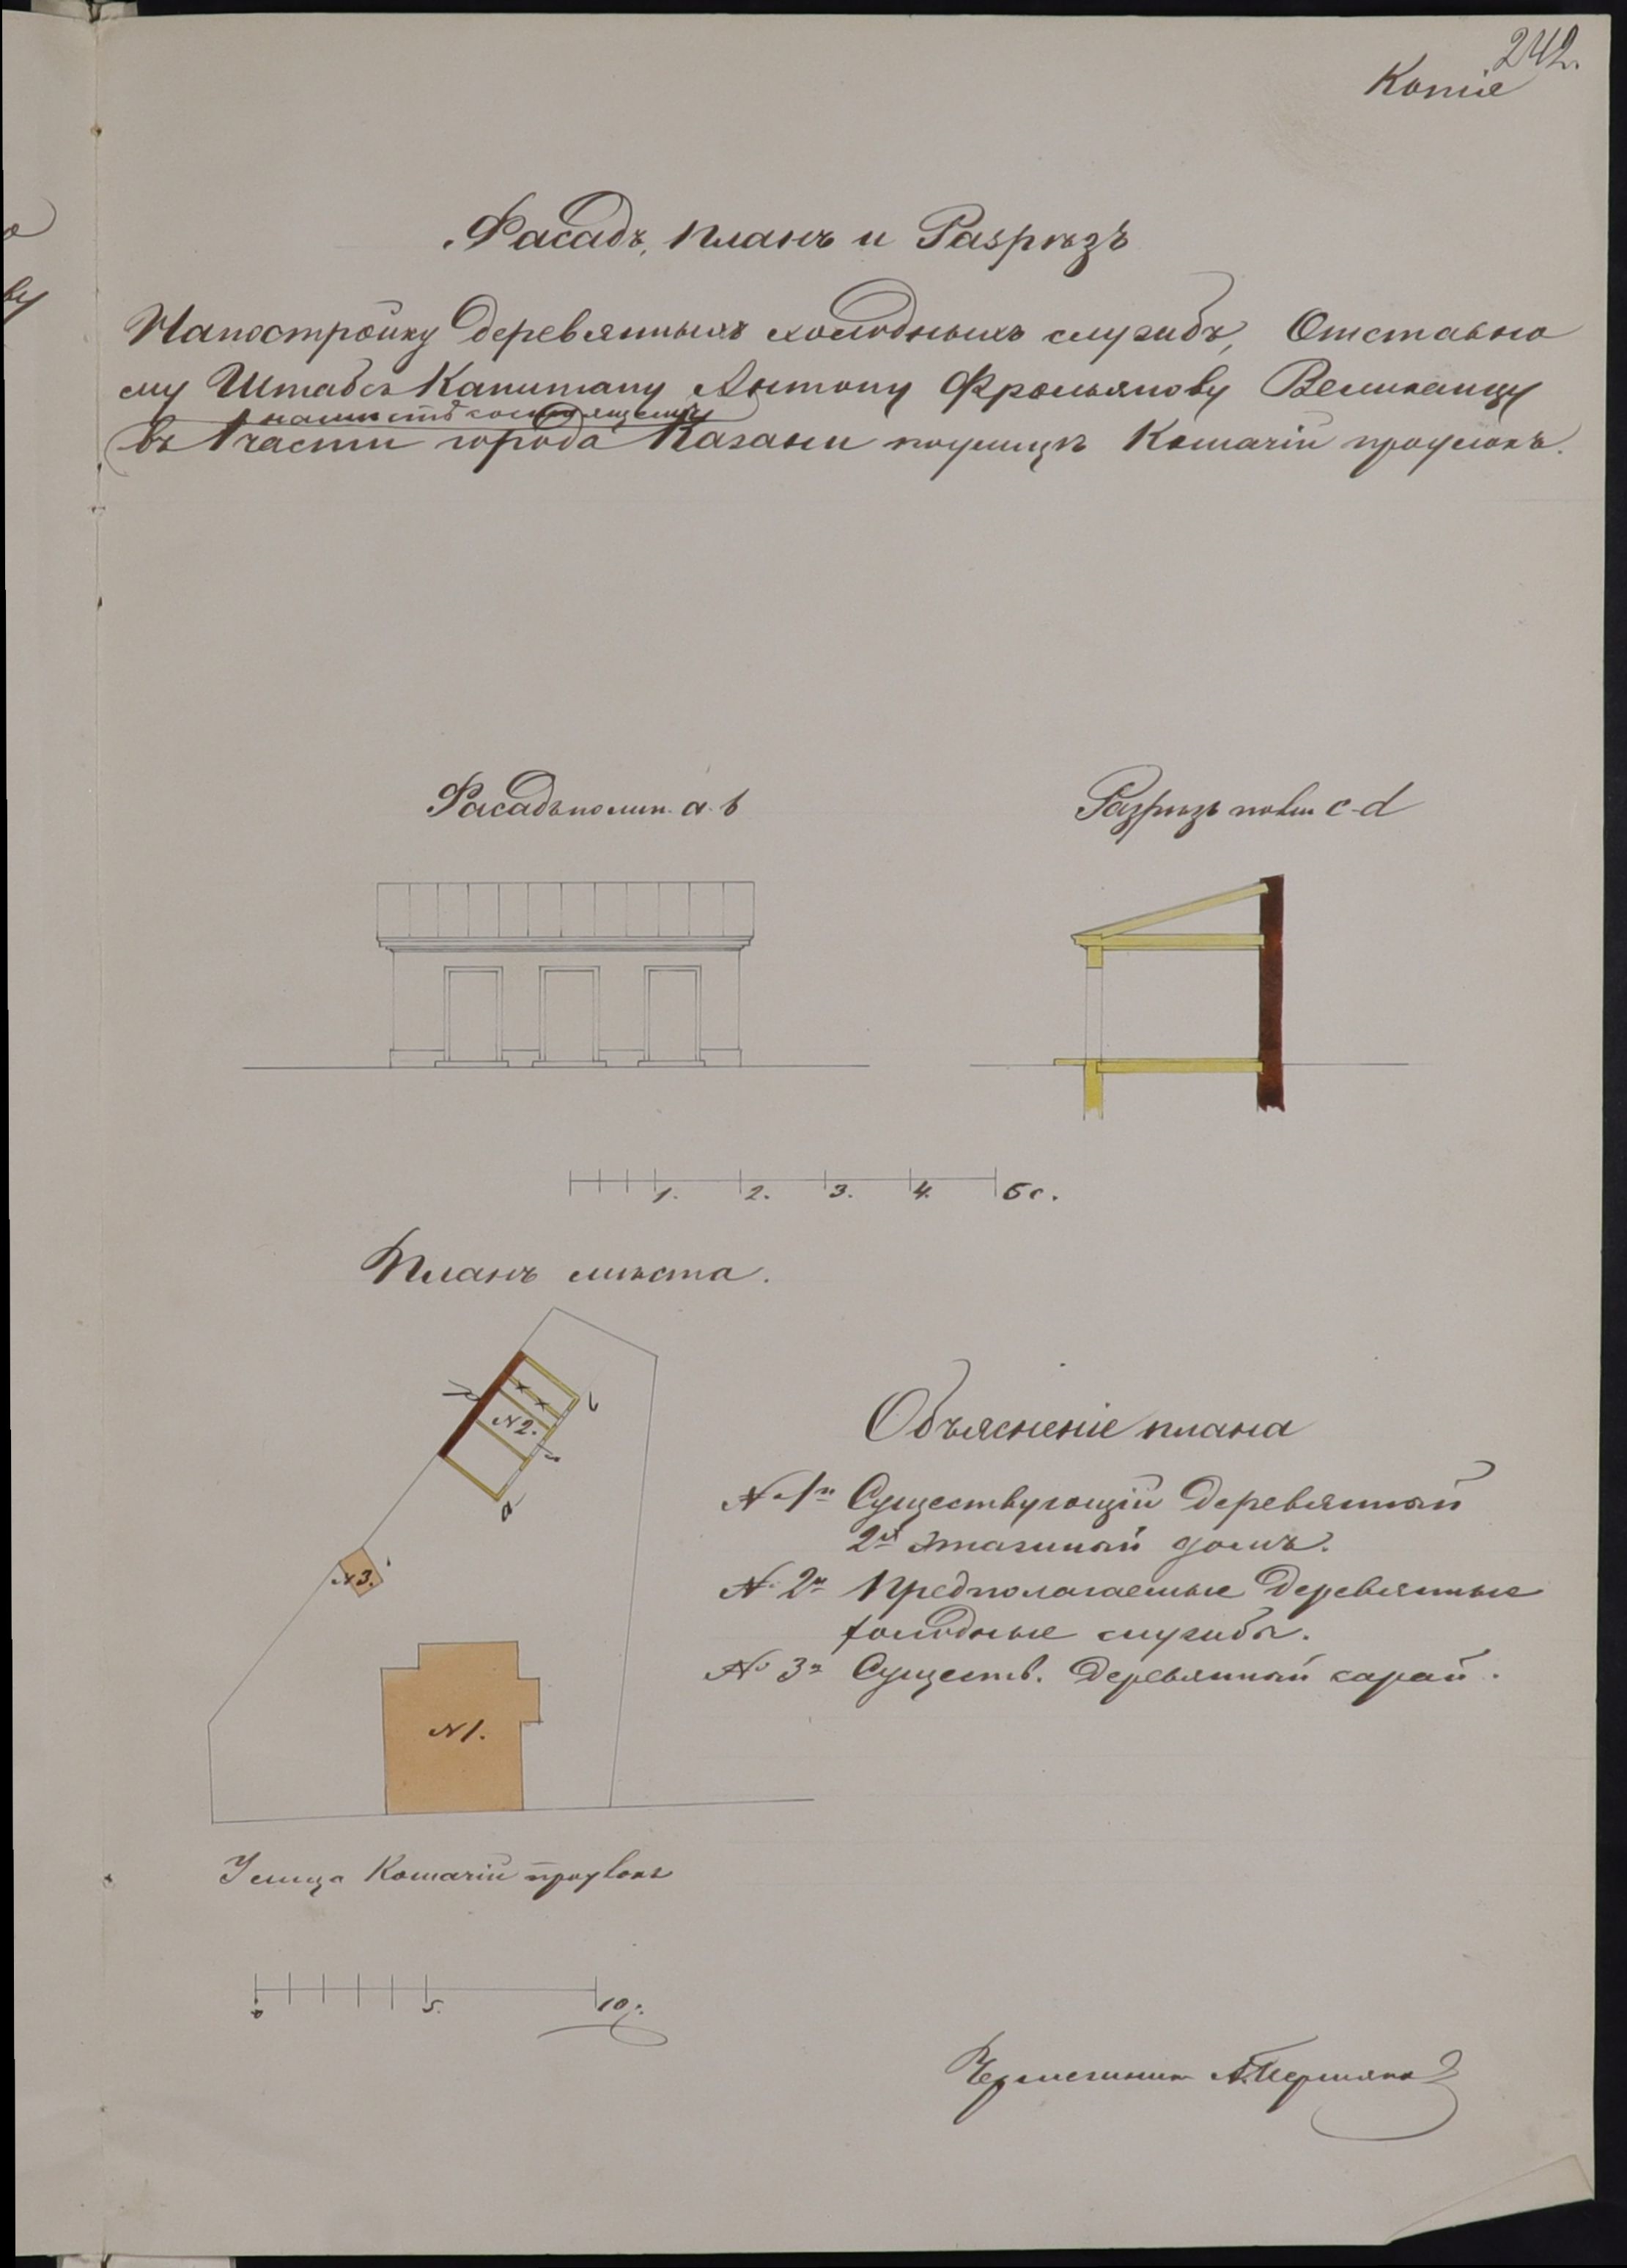 242.
Копіе
Фасадъ, планъ и Разрѣзъ
На постройку деревянныхъ холодныхъ службъ, Отставно
му Штабсъ Капитану Антону Фрольянову Великанцу
на мѣстѣ состоящему
въ 1 части города Казани по улицѣ Кошачій проулокъ.
Фасадъ по лин. a. b
Разрѣзъ по лин c-d
1. 2. 3. 4. 5 с.
Планъ мѣста.
N 2.
a
Объясненіе плана
N 1й Существующій деревянный
2х этажный домъ.
N 2й Предполагаемые деревянные
холодные службы.
N 3й Существ. деревянный сарай.
N 3.
N 1.
Улица Кошачій проулокъ
0 5. 10.